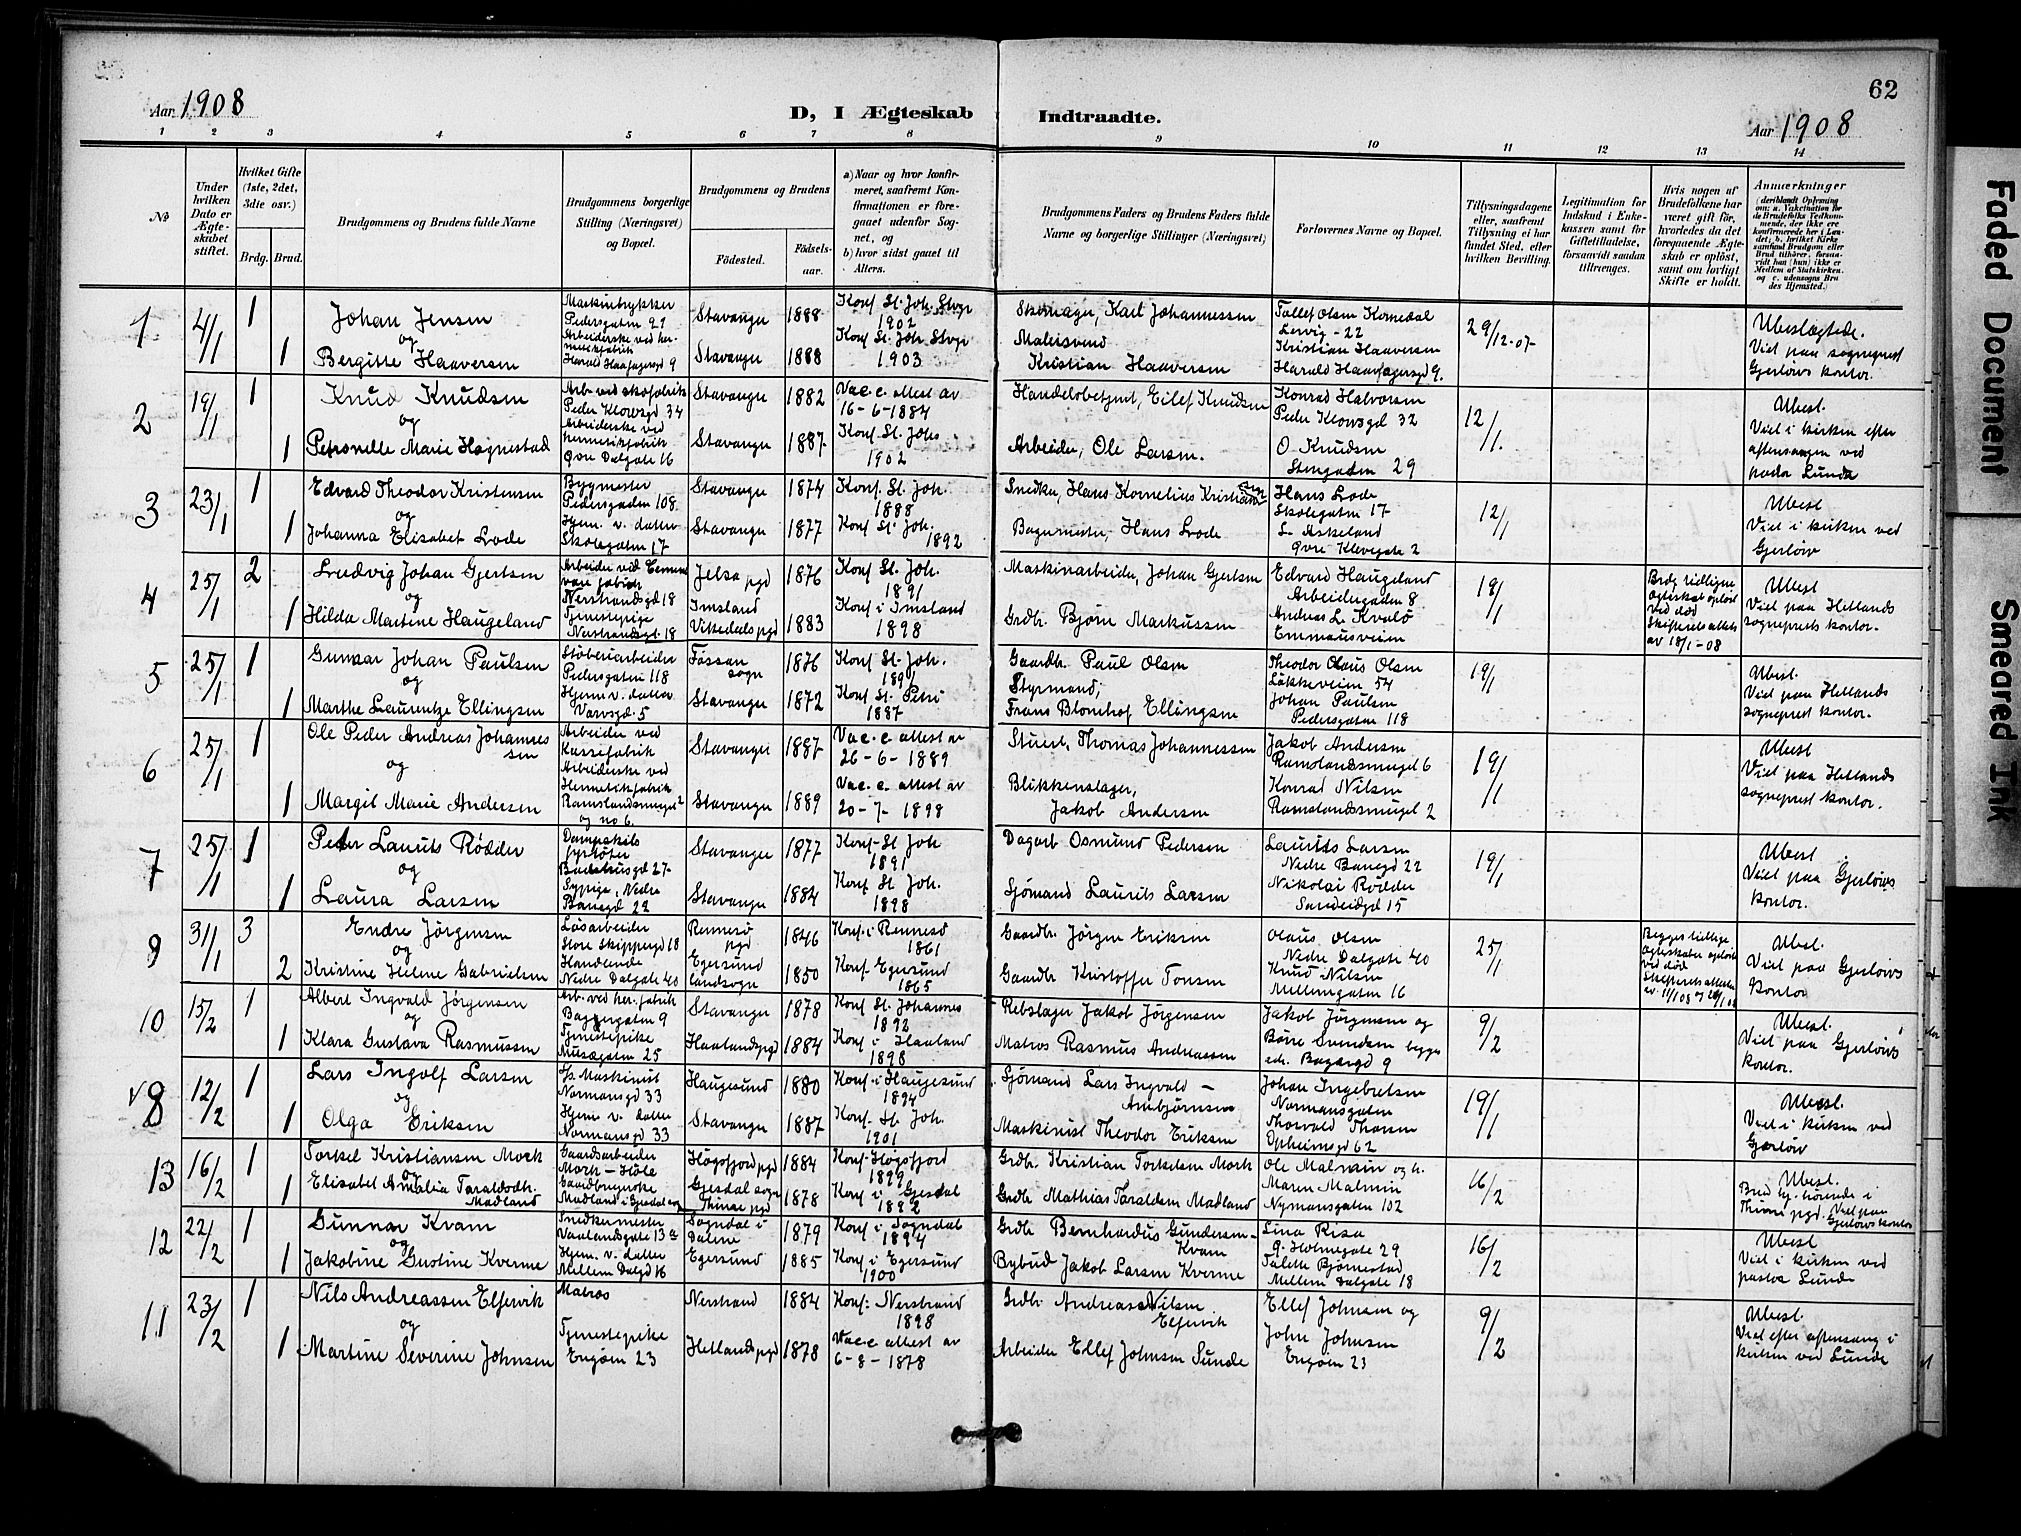 62
Aar 1908
D, I Ægteskab Indtraadte.
Aar 1908
1 2 3 4 5 6 7 8 9 10 11 12 13 14
№
Under hvilken Dato er Ægteskabet stiftet.
Hvilket Gifte (1ste, 2det, 3die osv.)
Brdg. Brud.
Brudgommens og Brudens fulde Navne
Brudgommens borgerlige Stilling (Næringsvei) og Bopæl.
Brudgommens og Brudens
Födested.
Födselsaar.
a) Naar og hvor konfirmeret, saafremt Konfirmationen er foregaaet udenfor Sognet, og
b) hvor sidst gaaet til Alters.
Brudgommens Faders og Brudens Faders fulde Navne og borgerlige Stillinger (Næringsvei)
Forlovernes Navne og Bopæl.
Tillysningsdagene eller, saafremt Tillysning ei har fundet Sted, efter hvilken Bevilling.
Legitimation for Indskud i Enkekassen samt for Giftetilladelse, forsaavidt saadan tiltrænges.
Hvis nogen af Brudefolkene har været gift för, hvorledes da det foregaaende Ægteskab er oplöst, samt om lovligt Skifte er holdt.
Anmerkninger
1 4/1 1
Johan Jensen
og
1 Bergitte Haaversen
Pedersgaten 29
Arbeiderske ved hermetikfabrik
Harald Haarfagersgd 9
Stavanger 1888
Konf. St. Joh. Stvgr 1902
Stavanger 1888
Konf St. Joh Stvgr 1903
Skomager, Karl Johannessen
Malersvend
Kristian Haaversen
Kristian Haaversen
Harald Haarfagersgd 9.
29/12-07-
Ubeslægtede.
Viet paa sogneprest Gjerløws kontor.
2 19/1 1
Knud Knudsen
og
1 Petronille Marie Høgnestad
Arb ved skofabrik
Peder Klowsgd 34
Arbeiderske ved hermetikfabrik
Øvre Dalgate 16
Stavanger 1882
Vac. c. attest av 16-6-1884
Stavanger 1887
Konf. St. Johs 1902
Eilef Knudsen
Arbeider, Ole Larsen.
Konrad Halvorsen
Peder Klowsgd 32
O. Knudsen
Stengaden 29
12/1.
Ubesl.
Viet i kirken efter aftensangen ved pastor Lunde
3 23/1 1
Edvard Theodor Kristensen
og
1 Johanna Elisabet Lode
Bygmester
Pedersgaden 108
Hjem. v. datter
Skolegaten 17
Stavanger 1874
Konf. St. Joh. 1888
Stavanger 1877
Konf St. Joh. 1892
Snedker, Hans Kornelius Kristiansen
Bagermester, Hans Lode
Hans Lode
Skolegaten 17
L. Askeland
Øvre Klevegate 2
12/1
Ubesl
Viet i kirken ved Gjerløw
4 25/1 2
Ludvig Johan Gjertsen
og
1 Hilda Martine Haugeland
Nerstrandsgd 18
Tjenestepige
Nerstrandsgt. 18
Jelsa pgd 1876
Konf St. Joh. 1891
Imsland Vikedals pgd 1883
Konf i Imsland 1898
Maskinarbeider, Johan Gjertsen
Grdbr. Bjørn Markussen
Edvard Haugeland
Arbeidergaden 8
Andreas L. Kvalø
Emmausveien
19/1
Brdg tidligere ægteskab opløst ved død
Skifterets attest av 18/1-08
Ubesl
Viet paa Hetlands sogneprests kontor.
5 25/1 1
Gunnar Johan Paulsen
og
1 Marthe Laurentze Ellingsen
Støberiarbeider
Pedersgaten 118
Hjem v. datter
Varvsgd. 5
Fossan sogn 1876
Konf St. Joh. 1891
Stavanger 1872
Konf St. Petri 1887
Gaardbr. Paul Olsen
Styrmand,
Frans Blomhof Ellingsen
Theodor Olaus Olsen
Løkkeveien 54
Johan Paulsen
Pedersgaten 118
19/1
Ubesl.
Viet paa Hetlands sogneprest kontor.
6 25/1 1
Ole Peder Andreas Johannessen
og
1 Margit Marie Andersen
Arbeider ved
Arbeiderske ved Hermetikfabrik
Ramslandsmuget 2 og no 6.
Stavanger 1887
Vac. c. attest av 26-6-1889
Stavanger 1889
Vac. c. attest av 20-7-1898
Stuert, Thomas Johannessen
Blikkenslager,
Jakob Andersen
Jakob Andersen
Ramslandsmuget 6
Konrad Nilsen
Ramslandsmuget 2
19/1
Ubesl
Viet paa Hetlands sogneprest kontor.
7 25/1 1
Peter Laurits Rødder
og
1 Laura Larsen
Dampskibs fyrbøter
Sypige, Nedre Banegd 22
Stavanger 1877
Konf. St Joh 1891
Stavanger 1884
Konf St. Joh. 1898
Dagarb Osmund Pedersen
Sjømand Laurits Larsen
Laurits Larsen
Nedre Banegd 22
Nikolai Rødder
Sandeidgd 15
19/1
Ubesl
Viet paa Gjerløws kontor.
9 31/1 3
Endre Jørgensen
og
2 Kristine Helene Gabrielsen
Løsarbeider
Store Skippergd 18
Handlende
Nedre Dalgate 40
Rennesø pgd 1846
Konf. i Rennesø 1861
Egersund landsogn 1850
Konf. Egersund 1865
Gaardbr. Jörgen Eriksen
Gaardbr Kristoffer Tonsen
Olaus Olsen
Nedre Dalgate 40
Knud Nilsen
Mellemgaten 16
25/1
Begges tidlige ægteskaber opløst ved død
Ubesl.
Viet paa Gjerløws kontor
10 15/2 1
Albert Ingvald Jørgensen
og
1 Klara Gustava Rasmussen
Arb. ved her. fabrik
Baggergaten 9
Tjenestepike
Musægaten 25
Stavanger 1878
Konf St. Johannes 1892
Haalandspgd 1884
Konf i Haaland 1898
Rebslager Jakob Jørgensen
Matros Rasmus Andreassen
Jakob Jørgensen og
Børre Svendsen begge
9/2
Ubesl.
Viet paa Gjerløws kontor.
8 12/2 1
Lars Ingolf Larsen
og
1 Olga Eriksen
Maskinist
Normansgd 33
Hjem v. datter
Normansgd 33
Haugesund 1880
Konf. i Haugesund 1894
Stavanger 1887
Konf. St Joh. 1901
Sjømand Lars Ingvald Ambjørnsen
Maskinist Theodor Eriksen
Johan Ingebretsen
Normansgaten
Thorvald Thorsen
Opheimsgd 62
19/1
Ubesl.
Viet i kirken ved Gjerløw
13 16/2 1
Torkel Kristiansen Mork
og
1 Elisabet Amalia Taraldsdtr. Madland
Gaardsarbeider
Mork - Høle
Høgsfjord pgd 1884
Konf. Høgsfjord 1899
Gjesdal sogn 1878
Konf i Gjesdal 1892
Grdbr. Kristian Torkelsen Mork
Grdbr Mathias Taraldsen Madland
Ole Malmin og h.
Maren Malmin
Nymansgaten 102
16/2
Ubesl.
12 22/2 1
Gunnar Kvam
og
1 Jakobine Gustine Kverme
Snedkermester
Vaalandsgate 13a
Hjem. v. datter
Mellem Dalgd 16
Sogndal i Dalene 1879
Konf i Sogndal 1894
Egersund 1885
Konf i Egersund 1900
Grdbr Bernhardus Gundersen Kvam
Bybud Jakob Larsen Kverme
Lina Risa
Ø. Holmegate 29
Talette Bjørnestad
Mellem Dalgate 18
16/2
Ubesl
Viet i kirken ved pastor Lunde
11 23/2 1
Nils Andreassen Elfervik
og
1 Martine Severine Johnsen
Matros
Tjenestepike
Engøen 23
Nerstrand 1884
Konf: Nerstrand 1898
Hetlands pgd 1878
Vac c attest av 6-8-1878
Grdbr Andreas Nilsen Elfervik
Arbeider Ellef Johnsen Sunde
Ellef Johnsen og
John Johnsen
Engøen 23
9/2
Ubesl.
Viet efter aftensang i kirken ved Lunde
Faded Document
Smeared Ink